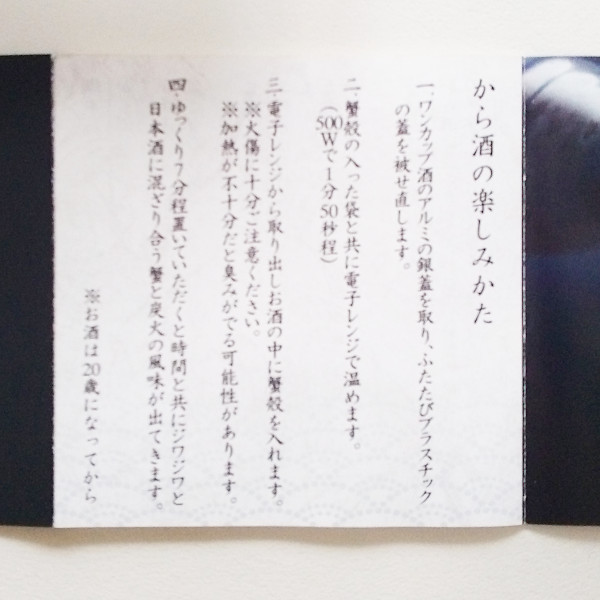 から酒の楽しみかた
一、ワンカップ酒のアルミの銀蓋を取り、ふたたびプラスチック
の蓋を被せ直します。
二、蟹殻の入った袋と共に電子レンジで温めます。
（500Wで1分50秒程）
三、電子レンジから取り出しお酒の中に蟹殻を入れます。
※火傷に十分ご注意ください。
※加熱が不十分だと臭みがでる可能性があります。
四、ゆっくり7分程置いていただくと時間と共にジワジワと
日本酒に混ざり合う蟹と炭火の風味が出てきます。
※お酒は20歳になってから